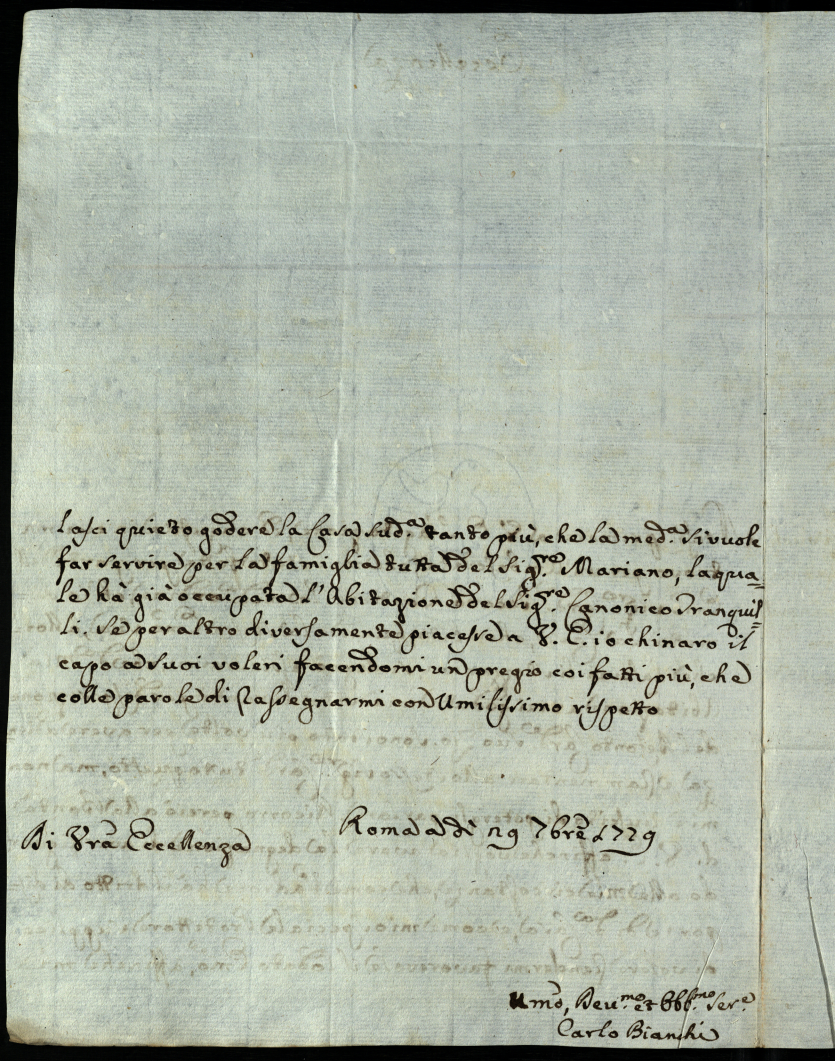 lasci quieto godere la Casa sud.ª tanto più, che la med.ª si vuole
far servire per la famiglia tutta del Sig.re Mariano, la qua=
le hà già occupata l'Abitazione del Sig.re Canonico Tranquil=
li. Se per altro diversamente piacesse a V. E. io chinaro il
capo a suoi voleri facendomi un pregio coi fatti più, che
colle parole di Rassegnarmi con Umilissimo rispetto
Di Vrã Eccellenza
Roma a dì 29 7brẽ 1779
Umõ, Deu.mo et Obb.mo Ser.e
Carlo Bianchi